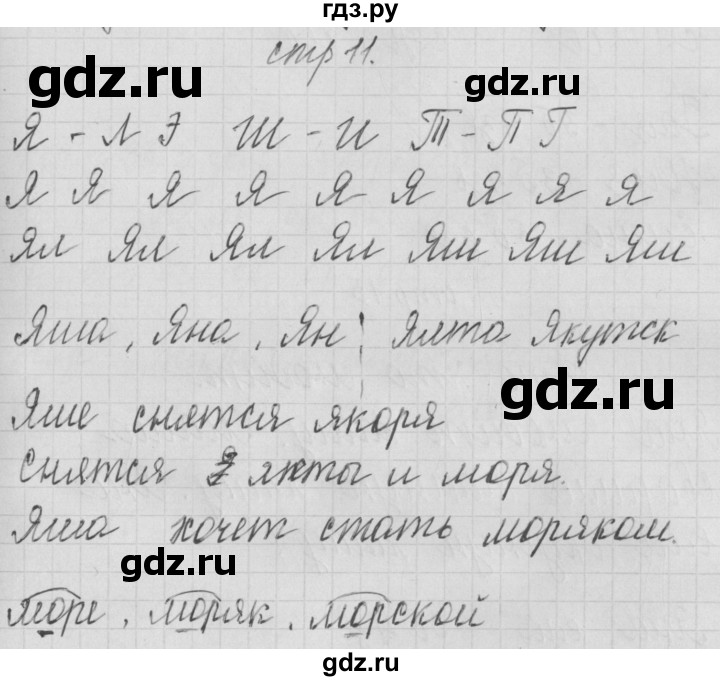 гдз.ру
стр 11.
gdz.ru
gdz.ru
Я - Л Э Ш - И Т - П Г
Я Я Я Я Я Я Я Я Я
Ял Ял Ял Ял Яш Яш Яш
Яша, Яна, Ян Ялта Якутск
gdz.ru
Яше снятся якоря
Снятся яхты и моря.
Яша хочет стать моряком.
gdz.ru
море, моряк, морской
gdz.ru